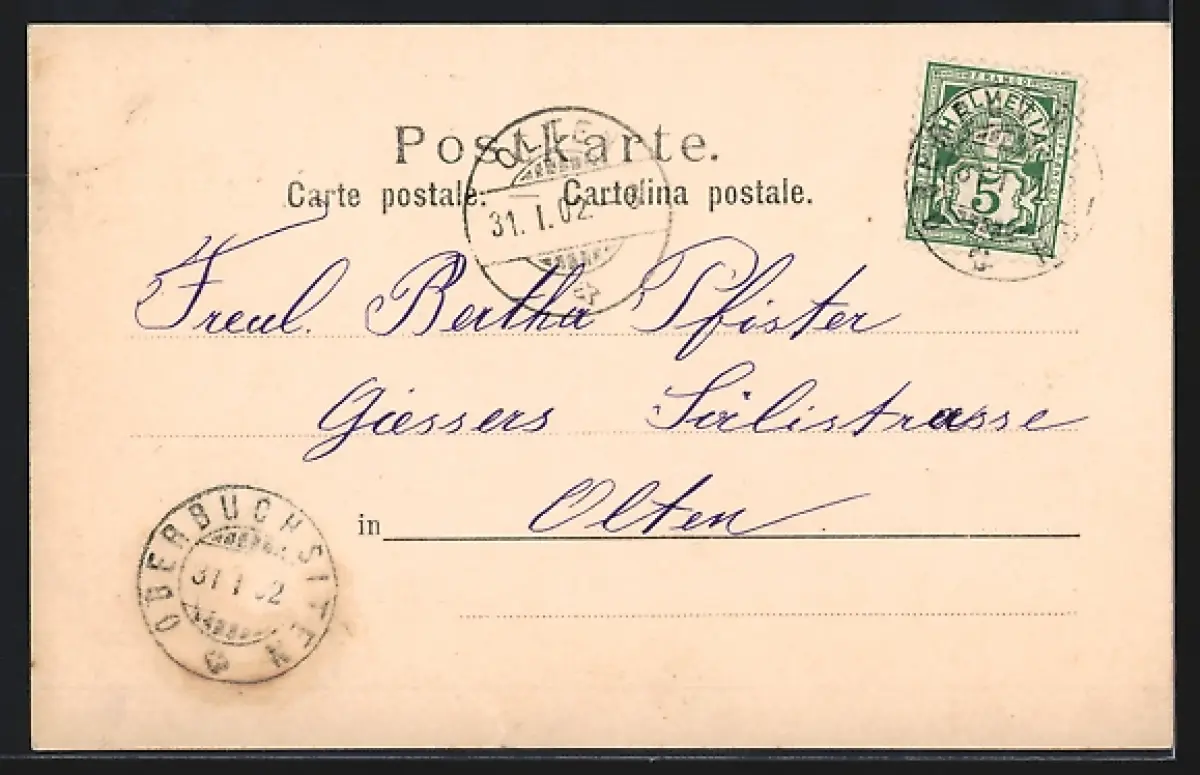 Postkarte.
Carte postale. Cartolina postale.
HELVETIA
5
31. I. 02
Freul. Bertha Pfister
Giessers Sälistrasse
in Olten
OBERBUCHSITEN
31 I 02